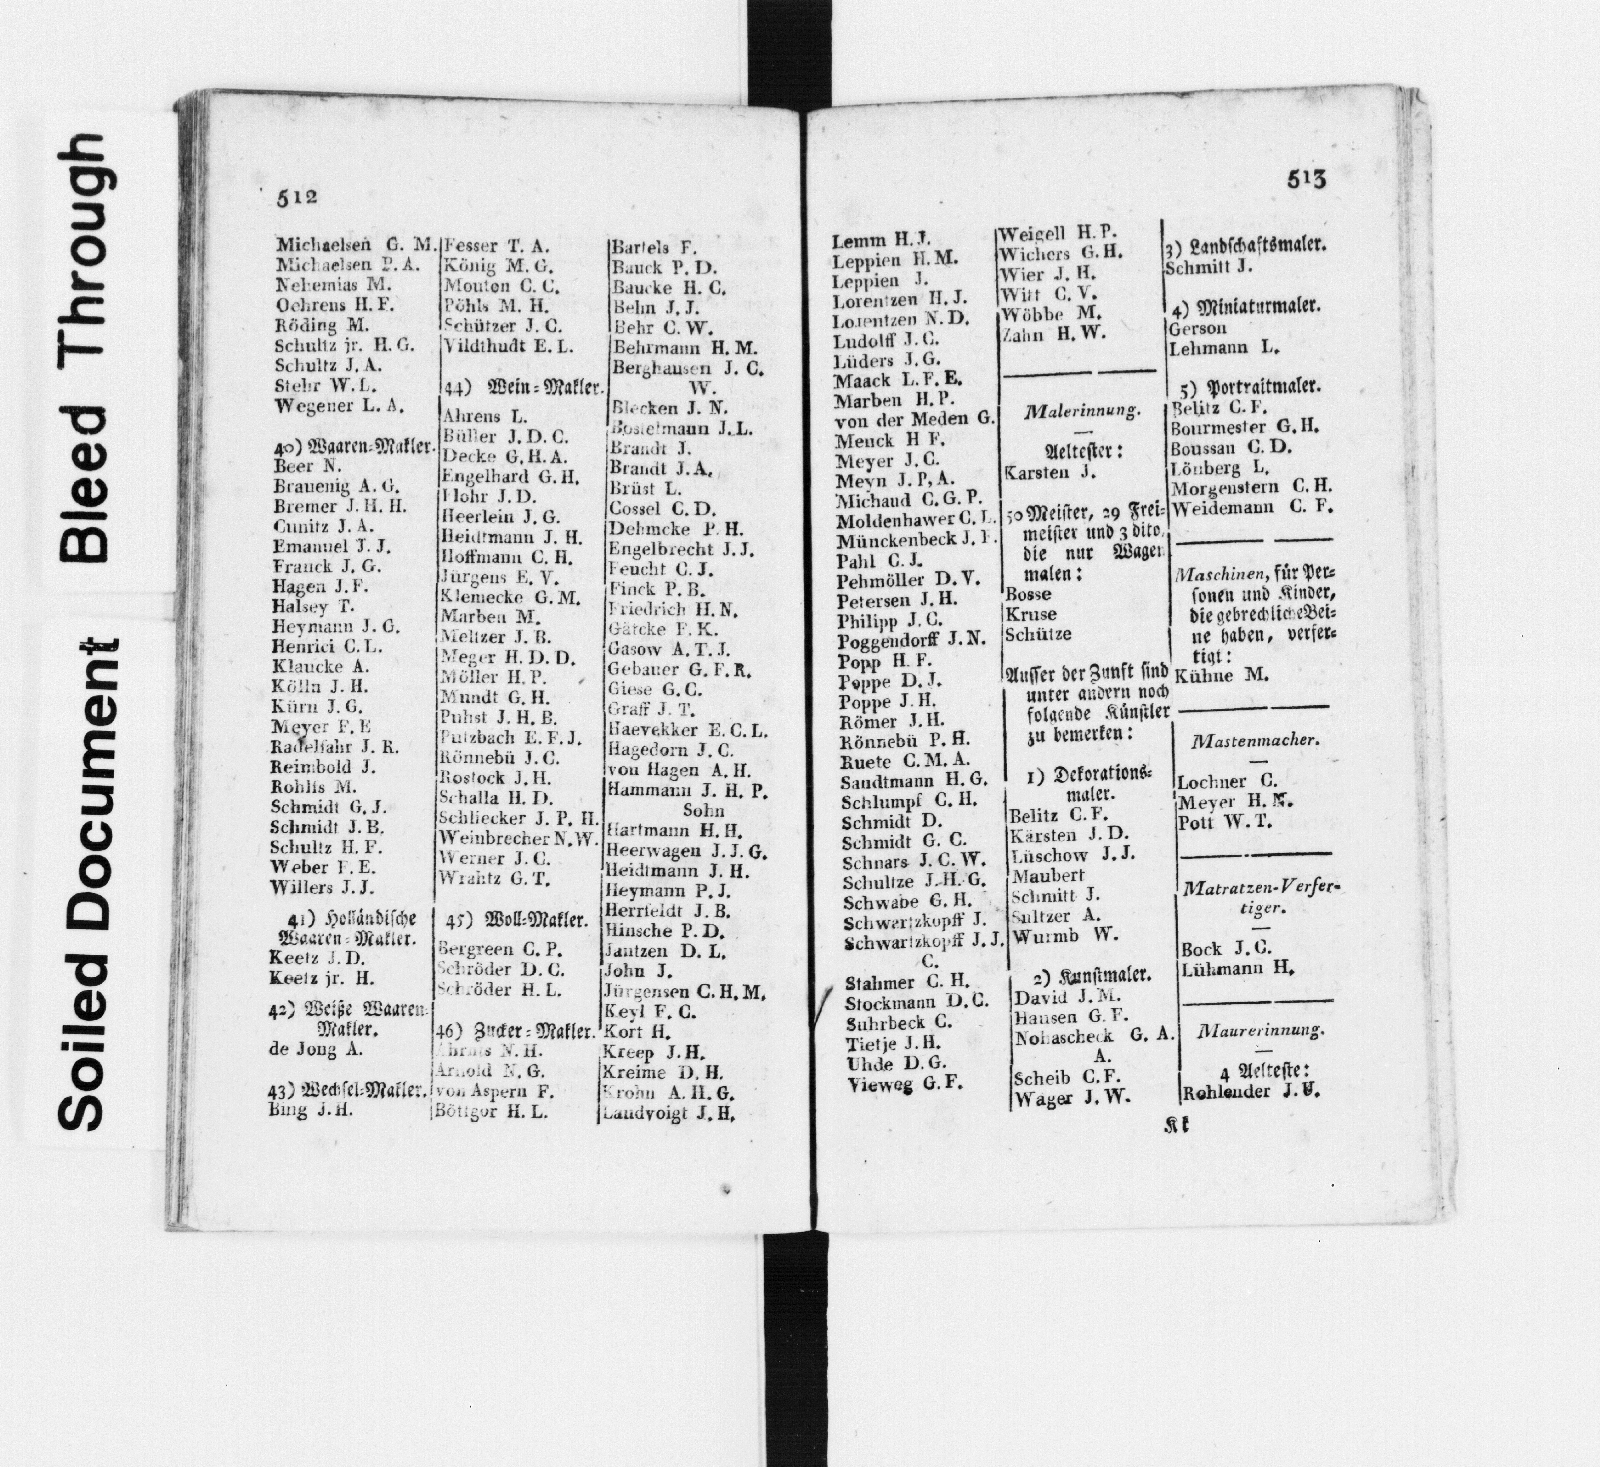 Soiled Document Bleed Through
512
Michaelsen G. M.
Michaelsen P. A.
Nehemias M.
Oehrens H. F.
Röding M.
Schultz jr. H. G.
Schultz J. A.
Stehr W. L.
Wegener L. A.
40) Waaren-Makler.
Beer N.
Brauenig A. G.
Bremer J. H. H.
Cunitz J. A.
Emanuel J. J.
Franck J. G.
Hagen J. F.
Halsey T.
Heymann J. G.
Henrici C. L.
Klaucke A.
Kölln J. H.
Kürn J. G.
Meyer F. E
Radelfahr J. R.
Reimbold J.
Rohlis M.
Schmidt G. J.
Schmidt J. B.
Schultz H. F.
Weber F. E.
Willers J. J.
41) Holländische
Waaren-Makler.
Keetz J. D.
Keetz jr. H.
42) Weiße Waaren-
Makler.
de Jong A.
43) Wechsel-Makler.
Bing J. H.
Fesser T. A.
König M. G.
Mouton C. C.
Pöhls M. H.
Schützer J. C.
Vildthudt E. L.
44) Wein-Makler.
Ahrens L.
Büller J. D. C.
Decke G. H. A.
Engelhard G. H.
Flohr J. D.
Heerlein J. G.
Heidtmann J. H.
Hoffmann C. H.
Jürgens E. V.
Klemecke G. M.
Marben M.
Meltzer J. B.
Meger H. D. D.
Möller H. P.
Mundt G. H.
Puhst J. H. B.
Putzbach E. F. J.
Rönnebü J. C.
Rostock J. H.
Schalla H. D.
Schliecker J. P. H.
Weinbrecher N. W.
Werner J. C.
Wrahtz G. T.
45) Woll-Makler.
Bergreen C. P.
Schröder D. C.
Schröder H. L.
46) Zucker-Makler.
Ahrens N. H.
Arnold N. G.
von Aspern F.
Böttger H. L.
Bartels F.
Bauck P. D.
Baucke H. C.
Behn J. J.
Behr C. W.
Behrmann H. M.
Berghausen J. C.
W.
Blecken J. N.
Bostelmann J. L.
Brandt J.
Brandt J. A.
Brüst L.
Cossel C. D.
Dehmcke P. H.
Engelbrecht J. J.
Feucht C. J.
Finck P. B.
Friedrich H. N.
Gätcke F. K.
Gasow A. T. J.
Gebauer G. F. R.
Giese G. C.
Graff J. T.
Haevekker E. C. L.
Hagedorn J. C.
von Hagen A. H.
Hammann J. H. P.
Sohn
Hartmann H. H.
Heerwagen J. J. G.
Heidtmann J. H.
Heymann P. J.
Herrfeldt J. B.
Hinsche P. D.
Jantzen D. L.
John J.
Jürgensen C. H. M.
Keyl F. C.
Kort H.
Kreep J. H.
Kreime D. H.
Krohn A. H. G.
Landvoigt J. H.
513
Lemm H. J.
Leppien H. M.
Leppien J.
Lorentzen H. J.
Lorentzen N. D.
Ludolff J. C.
Lüders J. G.
Maack L. F. E.
Marben H. P.
von der Meden G.
Menck H F.
Meyer J. C.
Meyn J. P. A.
Michaud C. G. P.
Moldenhawer C. L.
Münckenbeck J. F.
Pahl C. J.
Pehmöller D. V.
Petersen J. H.
Philipp J. C.
Poggendorff J. N.
Popp H. F.
Poppe D. J.
Poppe J. H.
Römer J. H.
Rönnebü P. H.
Ruete C. M. A.
Sandtmann H. G.
Schlumpf C. H.
Schmidt D.
Schmidt G. C.
Schnars J. C. W.
Schultze J. H. G.
Schwabe G. H.
Schwartzkopff J.
Schwartzkopff J. J.
C.
Stahmer C. H.
Stockmann D. C.
Suhrbeck C.
Tietje J. H.
Uhde D. G.
Vieweg G. F.
Weigell H. P.
Wichers G. H.
Wier J. H.
Witt C. V.
Wöbbe M.
Zahn H. W.
Malerinnung.
Aeltester:
Karsten J.
50 Meister, 29 Frei-
meister und 3 dito,
die nur Wagen
malen:
Bosse
Kruse
Schütze
Ausser der Zunft sind
unter andern noch
folgende Künstler
zu bemerken:
1) Dekorations-
maler.
Belitz C. F.
Karsten J. D.
Lüschow J. J.
Maubert
Schmitt J.
Sultzer A.
Wurmb W.
2) Kunstmaler.
David J. M.
Hansen G. F.
Nohascheck G. A.
A.
Scheib C. F.
Wager J. W.
3) Landschaftsmaler.
Schmitt J.
4) Miniaturmaler.
Gerson
Lehmann L.
5) Portraitmaler.
Belitz C. F.
Bourmester G. H.
Boussan C. D.
Lönberg L.
Morgenstern C. H.
Weidemann C. F.
Maschinen, für Per-
sonen und Kinder,
die gebrechliche Bei-
ne haben, verfer-
tigt:
Kühne M.
Mastenmacher.
Lochner C.
Meyer H. N.
Pott W. T.
Matratzen-Verfer-
tiger.
Bock J. C.
Lühmann H.
Maurerinnung.
4 Aelteste:
Rohlender J. U.
Kk